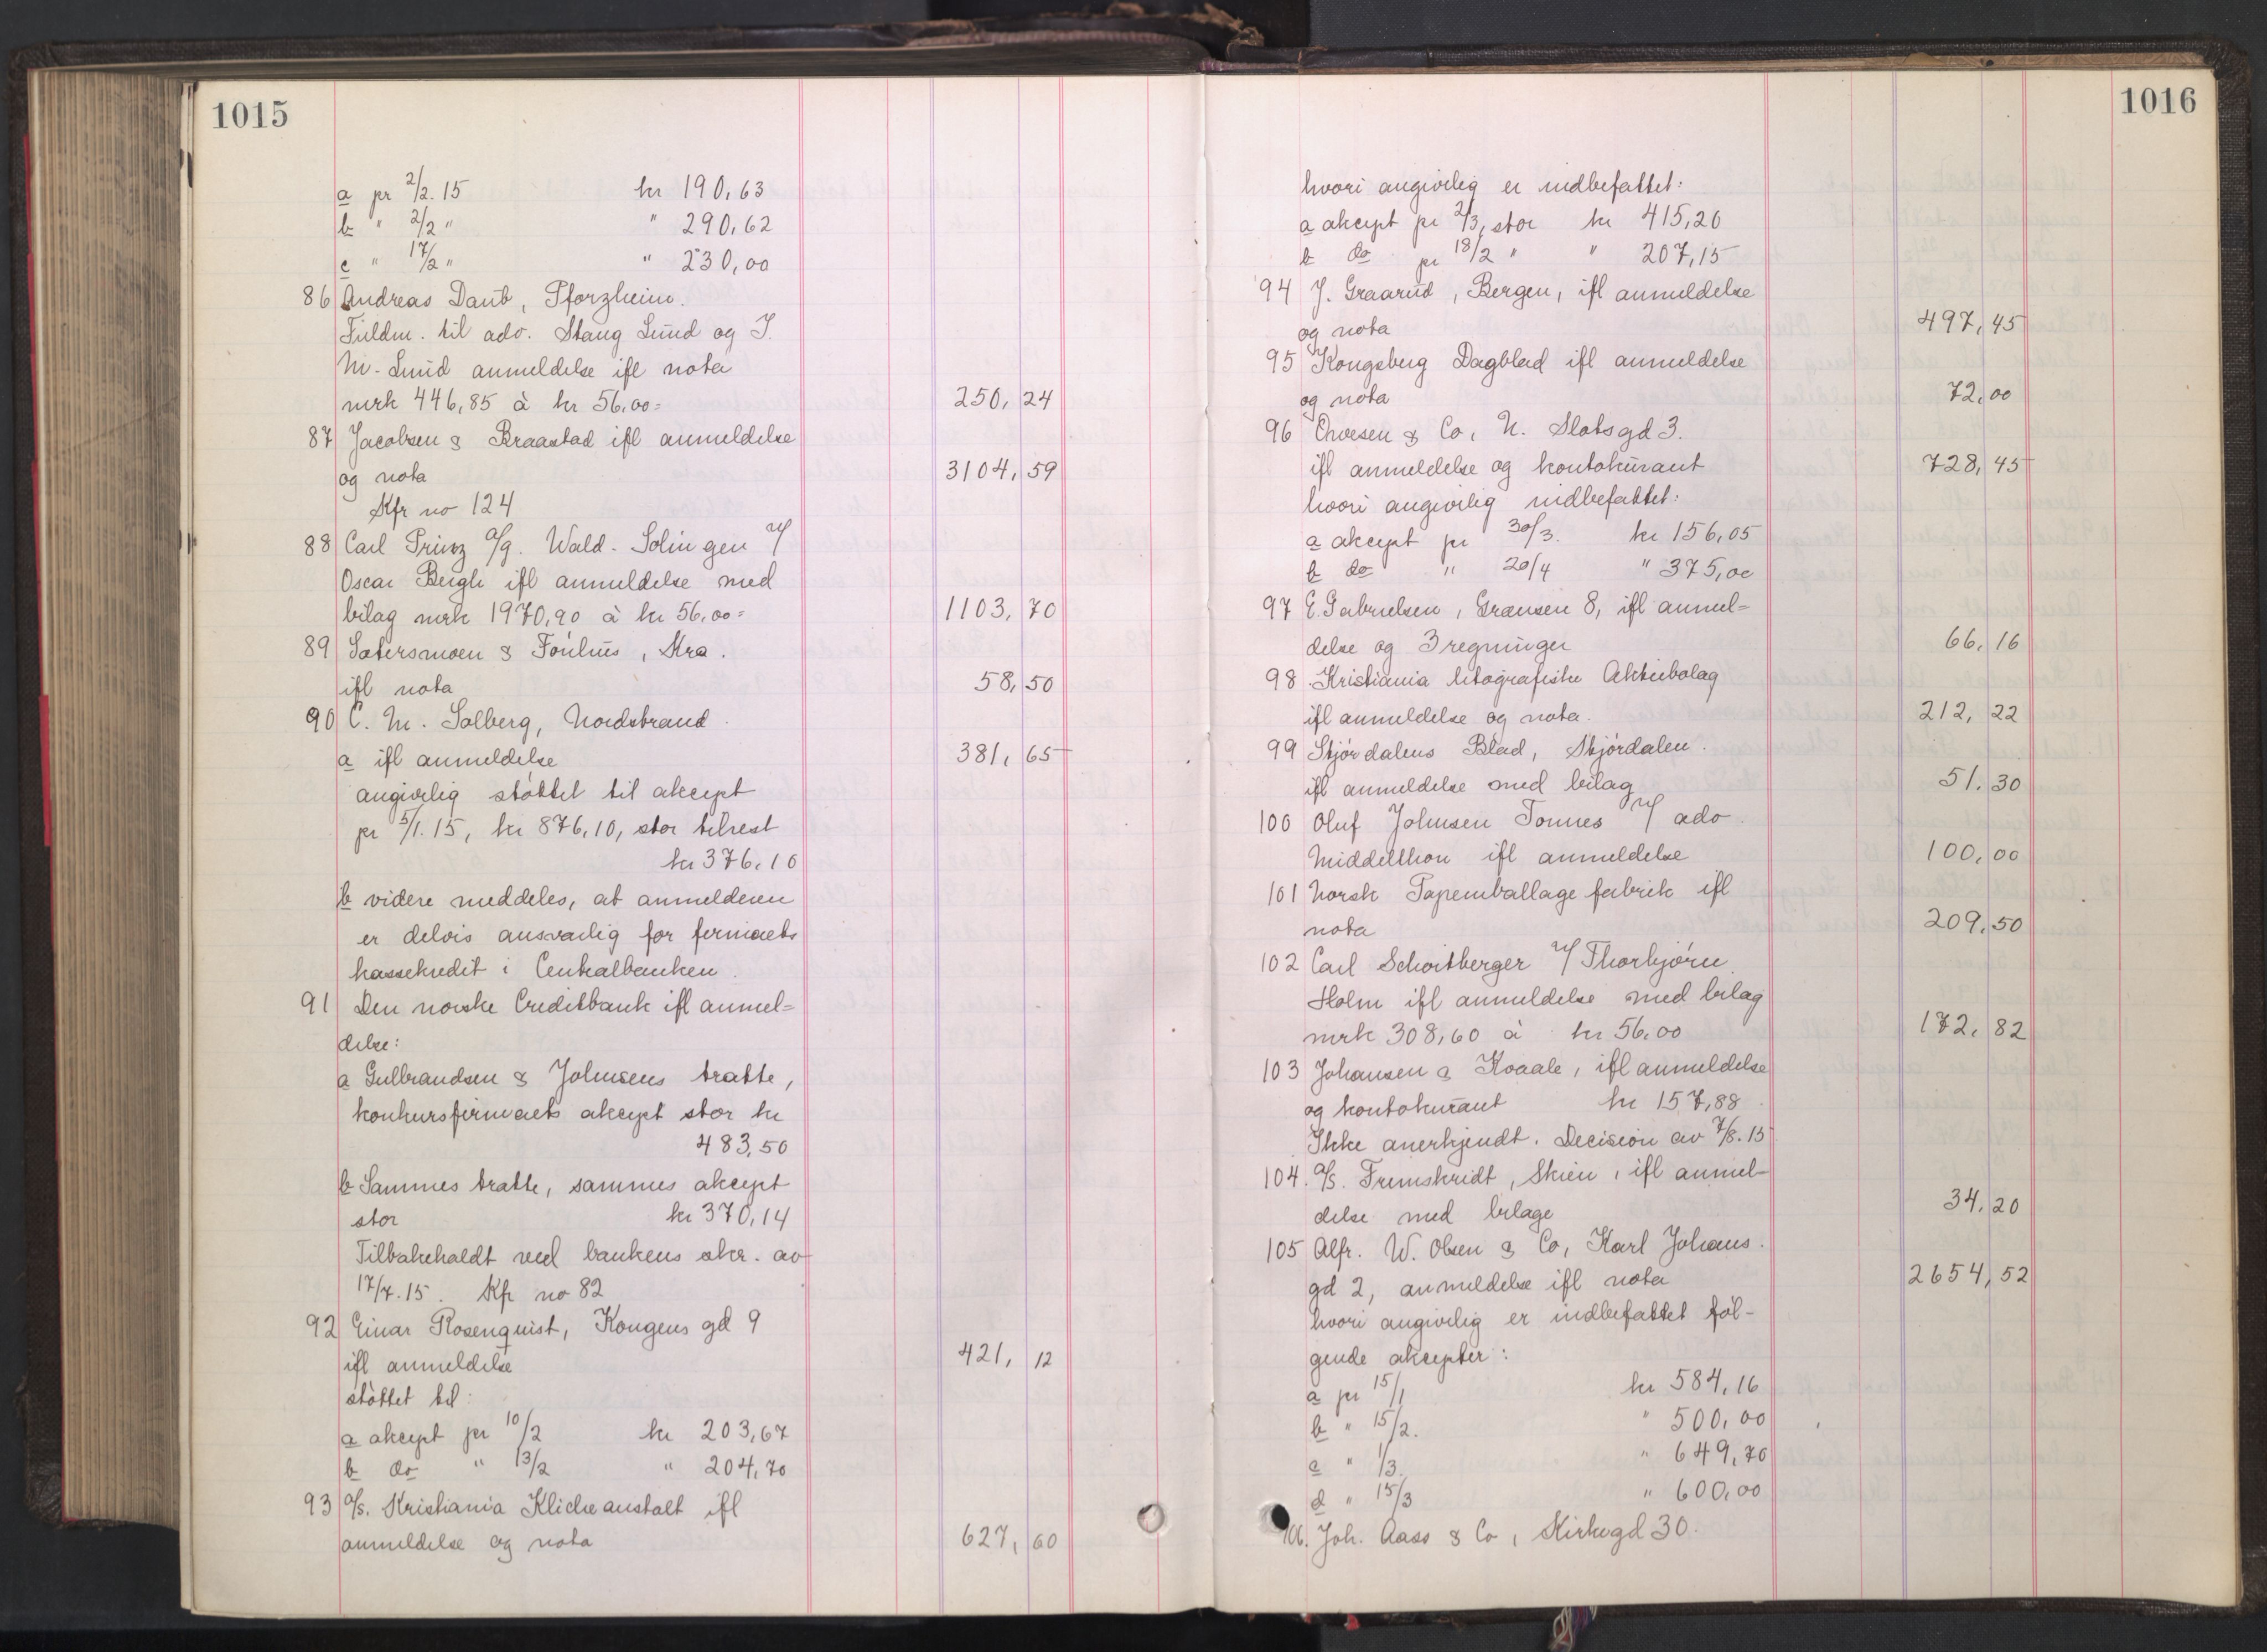 1015
a pr 2/2.15 kr 190,63
b " 2/2 " " 290,62
c " 17/2 " " 230,00
86 Andreas Daub, Pforzheim.
Fuldm. til adv. Stang Lund og J.
M. Lund anmeldelse ifl nota
mrk 446,85 à kr 56.00= 250,24
87 Jacobsen & Braastad ifl anmeldelse
og nota 3104,59
Kfr no 124
88 Carl Prinz a/g. Wald-Solingen v/
Oscar Bergh ifl anmeldelse med
bilag mrk 1970,90 à kr 56.00= 1103,70
89 Sætersmoen & Fönhus, Kra.
ifl nota 58,50
90 C. M. Solberg, Nordstrand.
a ifl anmeldelse 381,65
angivelig støttet til akcept
pr 5/1.15, kr 876,10, stor tilrest
kr 376.10
b videre meddeles, at anmelderen
er delvis ansvarlig for firmaets
kassekredit i Centralbanken.
91 Den norske Creditbank ifl anmel=
delse:
a Gulbrandsen & Johnsens tratte,
konkursfirmaets akcept stor kr
483,50
b Sammes tratte, sammes akcept
stor kr 370,14
Tilbakekaldt ved bankens skr. av
17/7.15. Kfr no 82
92 Einar Rosenquist, Kongens gd 9
ifl anmeldelse 421,12
støttet til:
a akcept pr 10/2 kr 203,67
b do " 13/2 " 204,70
93 a/s. Kristiania Klicheanstalt ifl
anmeldelse og nota 627,60
1016
hvori angivelig er indbefattet:
a akcept pr 2/3, stor kr 415,20
b do pr 18/2 " " 207,15
94 J. Graarud, Bergen, ifl anmeldelse
og nota 497,45
95 Kongsberg Dagblad ifl anmeldelse
og nota 72,00
96 & Co, N. Slotsgd 3.
ifl anmeldelse og kontokurant 728,45
hvori angivelig indbefattet:
a akcept pr 30/3. kr 156,05
b do " 20/4 " 375,00
97 E. Gabrielsen, Grænsen 8, ifl anmel=
delse og 3 regninger 66,16
98 Kristiania litografiske Aktiebolag
ifl anmeldelse og nota. 212,22
99 Stjördalens Blad, Stjördalen.
ifl anmeldelse med bilag 51.30
100 Oluf Johnsen Tonnes v/ adv.
Middelthon ifl anmeldelse 100,00
101 Norsk Papemballage fabrik ifl
nota 209,50
102 Carl v/ Thorbjörn
Holm ifl anmeldelse med bilag
mrk 308,60 à kr 56,00 172,82
103 Johansen & Kvaale, ifl anmeldelse
og kontokurant kr 157,88
Ikke anerkjendt. Decision av 7/8.15
104. a/s. Fremskridt, Skien, ifl anmel-
delse med bilage 34,20
105 Alfr. W. Olsen & Co, Karl Johans.
gd 2, anmeldelse ifl nota 2654,52
hvori angivelig er indbefattet føl-
gende akcepter:
a pr 15/1 kr 584,16
b " 15/2. " 500,00
c " 1/3. " 649,70
d " 15/3 " 600,00
106. Joh. Aass & Co, Kirkegd 30.